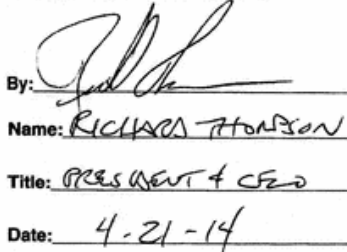 By:
Name: RICHARD THOMPSON
Title: PRESIDENT & CEO
Date: 4-21-14